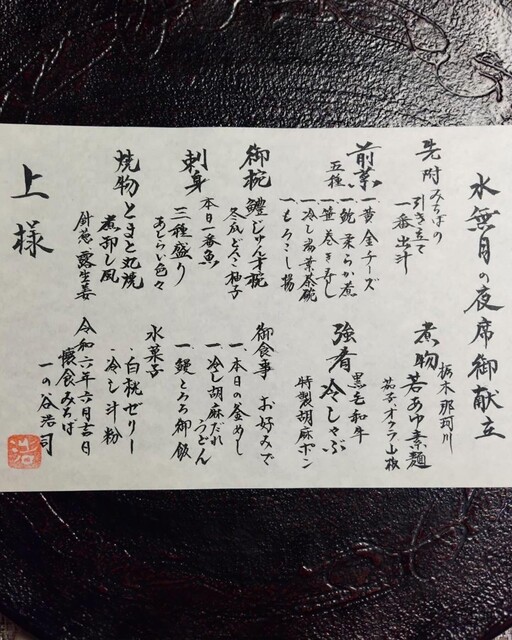 水無月の夜席御献立
先附 みちばの
引き立て
一番出汁
前菜
五種
一、黄金チーズ
一、鮑柔らか煮
一、笹巻き寿し
一、冷し翡翠茶碗
一、もろこし揚
御椀 鱧じゅん才椀
冬瓜どんこ柚子
刺身 本日一番魚
三種盛り
あしらい色々
焼物 とまと丸焼
煮卸し風
針葱 露生姜
栃木那珂川
煮物 若あゆ素麺
茄子、オクラ山椒
強肴 黒毛和牛
冷しゃぶ
特製胡麻ポン
御食事 お好みで
一、本日の釜めし
一、冷し胡麻だれ
うどん
一、鰻とろろ御飯
水菓子
・白桃ゼリー
・冷し汁粉
令和六年六月吉日
懐食みちば
一の谷浩司
上様